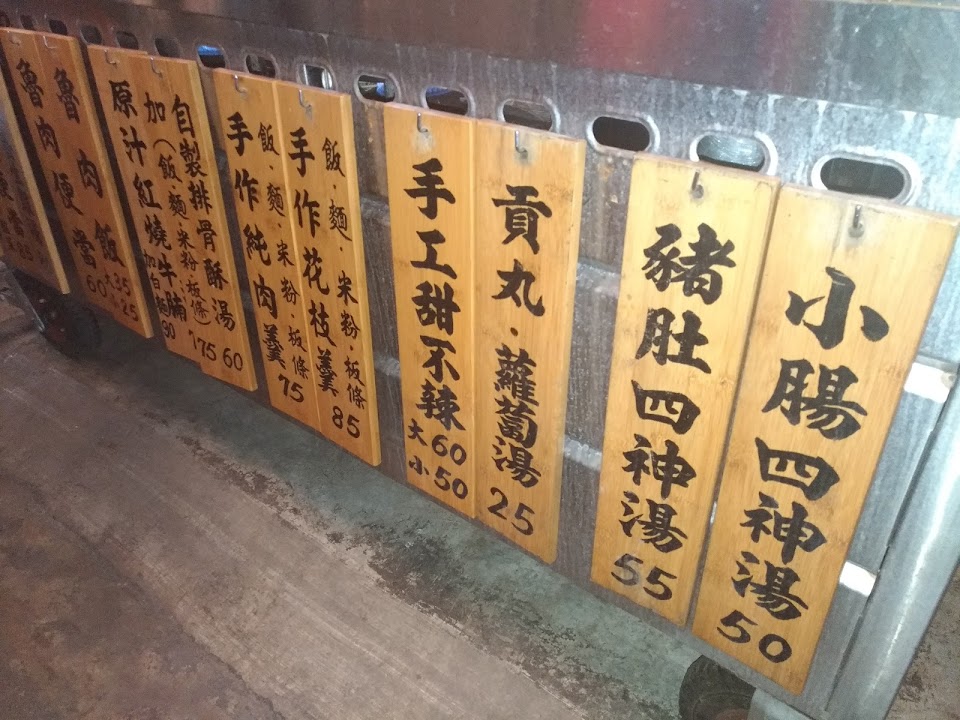 小腸四神湯 50
豬肚四神湯 55
貢丸·蘿蔔湯 25
手工甜不辣 大60 小50
飯·麵·米粉·板條
手作花枝羹 85
飯·麵·米粉·板條
手作純肉羹 75
自製排骨酥湯 60
加(飯·麵·米粉·板條) 75
原汁紅燒牛腩
魯肉飯 大35 小25
魯肉便當 60